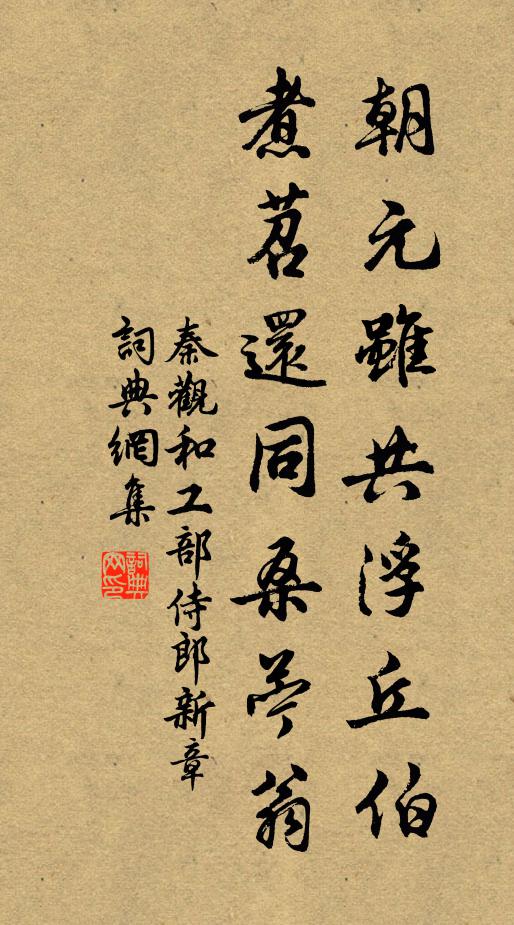 朝元雖共浮丘伯
煮茗還同桑苧翁
秦觀和工部侍郎新章
詞典網集
詞典網印